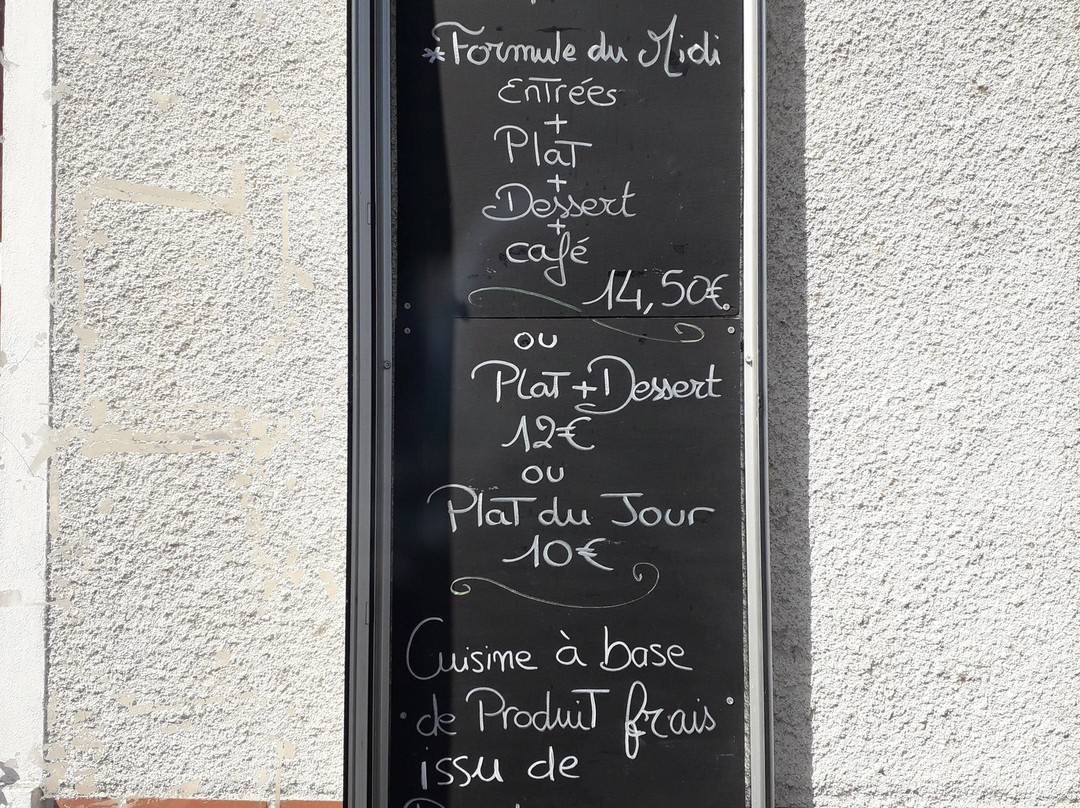 *Formule du Midi
Entrées
+
Plat
+
Dessert
+
café
14,50€
ou
Plat + Dessert
12€
ou
Plat du Jour
10€
Cuisine à base
de Produit frais
issu de